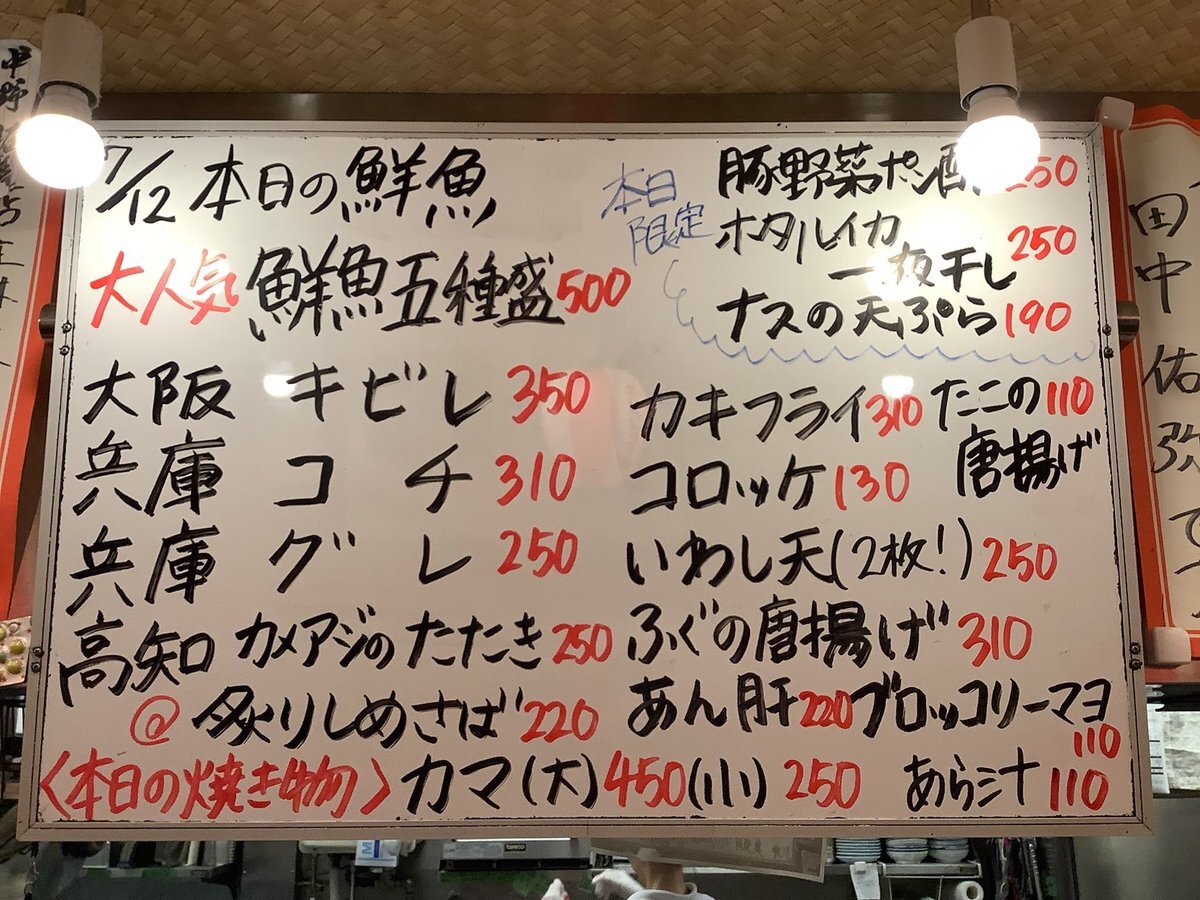 7/12 本日の鮮魚
大人気 鮮魚五種盛 500
大阪 キビレ 350
兵庫 コチ 310
兵庫 グレ 250
高知 カメアジのたたき 250
@ 炙りしめさば 220
〈本日の焼き物〉 カマ(大) 450 (小) 250
本日
限定
豚野菜ポン酢 250
ホタルイカ
一夜干し 250
ナスの天ぷら 190
カキフライ 310
たこの 110
唐揚げ
コロッケ 130
いわし天(2枚!) 250
ふぐの唐揚げ 310
あん肝 220
ブロッコリーマヨ
110
あら汁 110
中野
田中佑弥